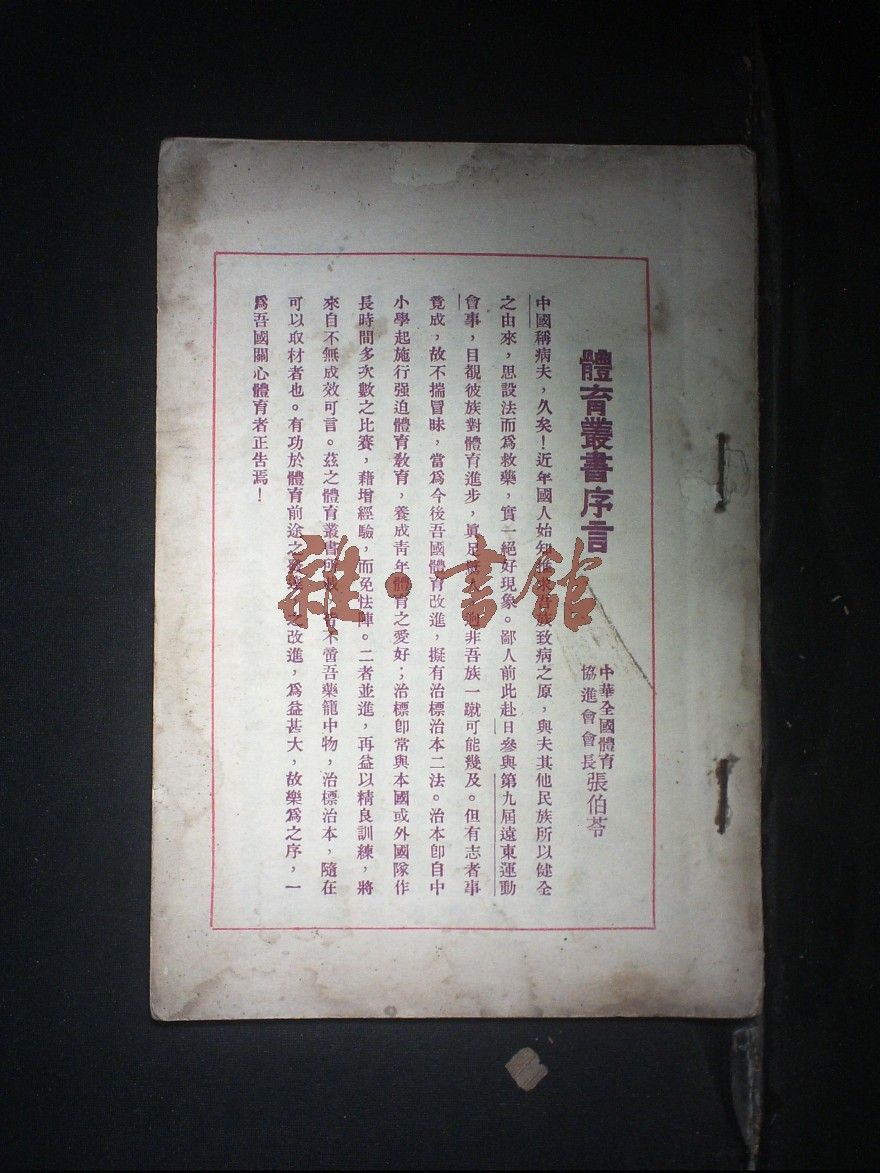 體育叢書序言
中華全國體育
協進會會長張伯苓
中國稱病夫，久矣！近年國人始知推求吾族致病之原，與夫其他民族所以健全
之由來，思設法而爲救藥，實一絕好現象。鄙人前此赴日參與第九屆遠東運動
會事，目覩彼族對體育進步，眞足非吾族一蹴可能幾及。但有志者事
竟成，故不揣冒昧，當爲今後吾國體育改進，擬有治標治本二法。治本卽自中
小學起施行强迫體育敎育，養成靑年體育之愛好；治標卽常與本國或外國隊作
長時間多次數之比賽，藉增經驗，而免怯陣。二者並進，再益以精良訓練，將
來自不無成效可言。茲之體育叢書不啻吾藥籠中物，治標治本，隨在
可以取材者也。有功於體育前途之之改進，爲益甚大，故樂爲之序，一
爲吾國關心體育者正告焉！
雜·書館